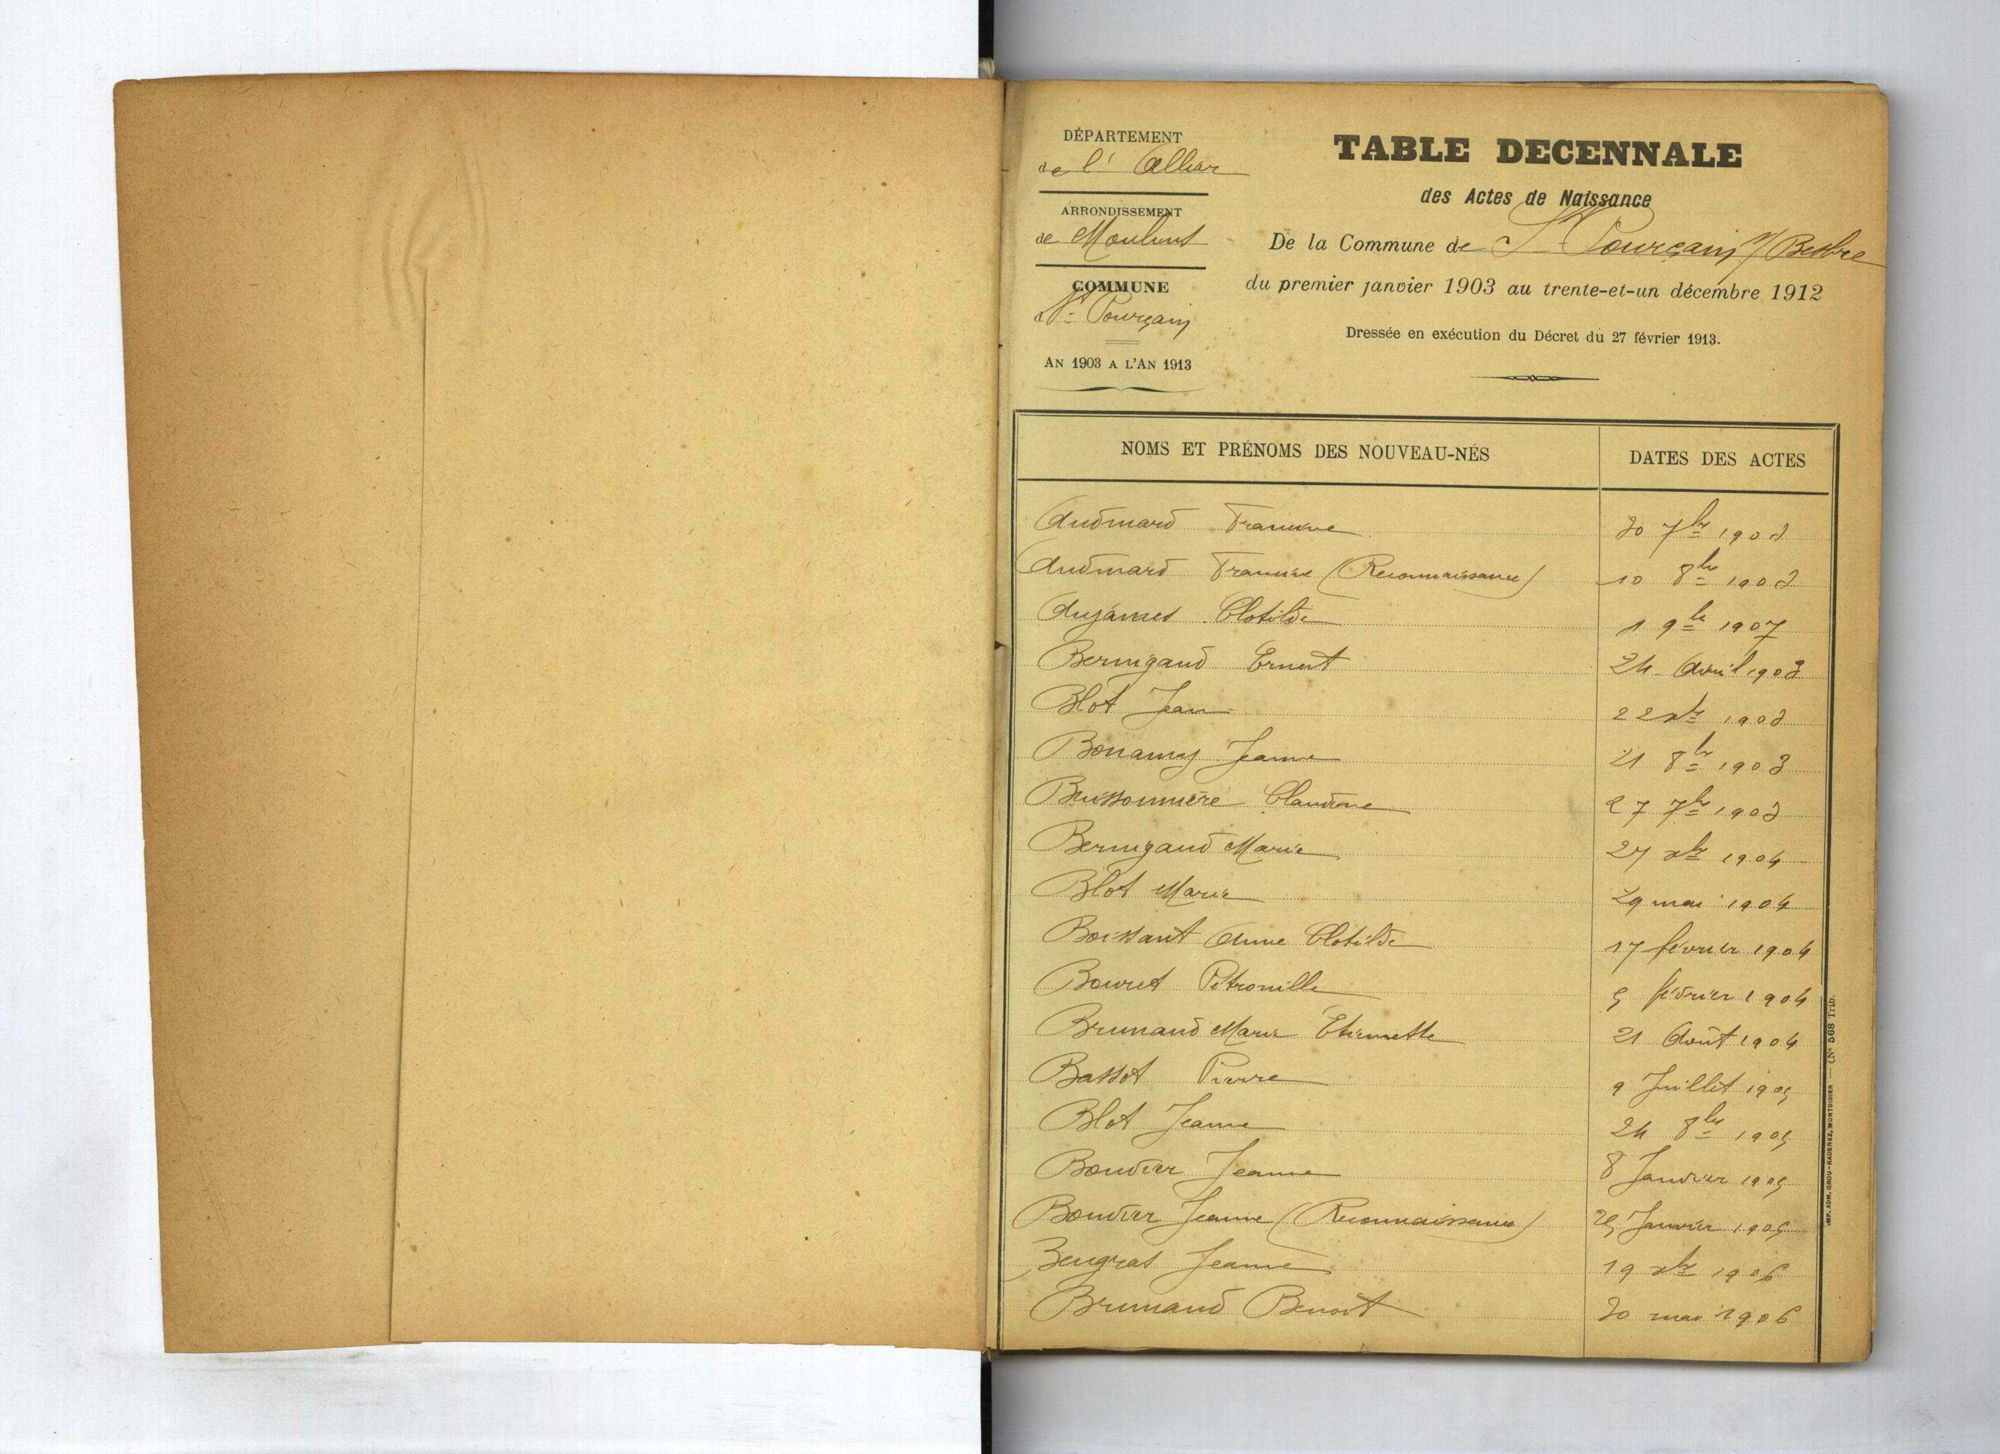 DÉPARTEMENT
de l'Allier
ARRONDISSEMENT
de Moulins
COMMUNE
d St Pourçain
AN 1903 A L'AN 1913
TABLE DECENNALE
des Actes de Naissance
De la Commune de St Pourçain s/ Besbre
du premier janvier 1903 au trente-et-un décembre 1912
Dressée en exécution du Décret du 27 février 1913.
NOMS ET PRÉNOMS DES NOUVEAU-NÉS DATES DES ACTES
Audinard Francine 30 7bre 1903
Audinard Francine (Reconnaissance) 10 8bre 1903
Aujames Clotilde 1 9bre 1907
Bernigaud Ernest 24 Avril 1903
Blot Jean 22 xbre 1903
Bonamy Jeanne 21 8bre 1903
Buissonnière Claudine 27 7bre 1903
Bernigaud Marie 27 xbre 1904
Blot Marie 29 mai 1904
Boissant Anne Clotilde 17 février 1904
Bouret Pétronille 5 février 1904
Brunaud Marie Etiennette 21 Août 1904
Bassot Pierre 9 Juillet 1905
Blot Jeanne 24 8bre 1905
Bouvier Jeanne 8 Janvier 1905
Bouvier Jeanne (Reconnaissance) 25 Janvier 1905
Beugras Jeanne 19 xbre 1906
Brunaud Benoit 30 mai 1906
IMP. ADM. GROU-RADENEZ, MONTDIDIER — (N° 568 Trib.